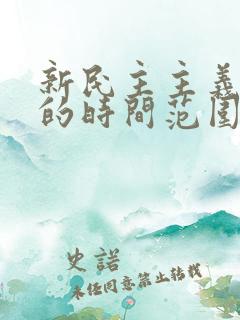 新民主主義
的時間范围
史諾
未经同意禁止转载